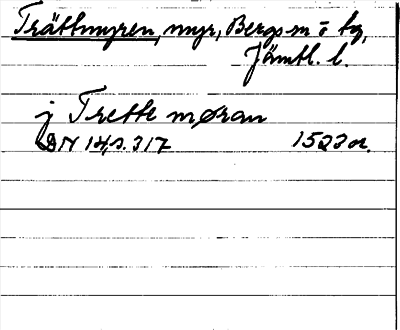 Trättmyren, myr, Bergs sn o tg,
Jämtl. l.
j Trette møran
DN 14, s. 317 1523 or.